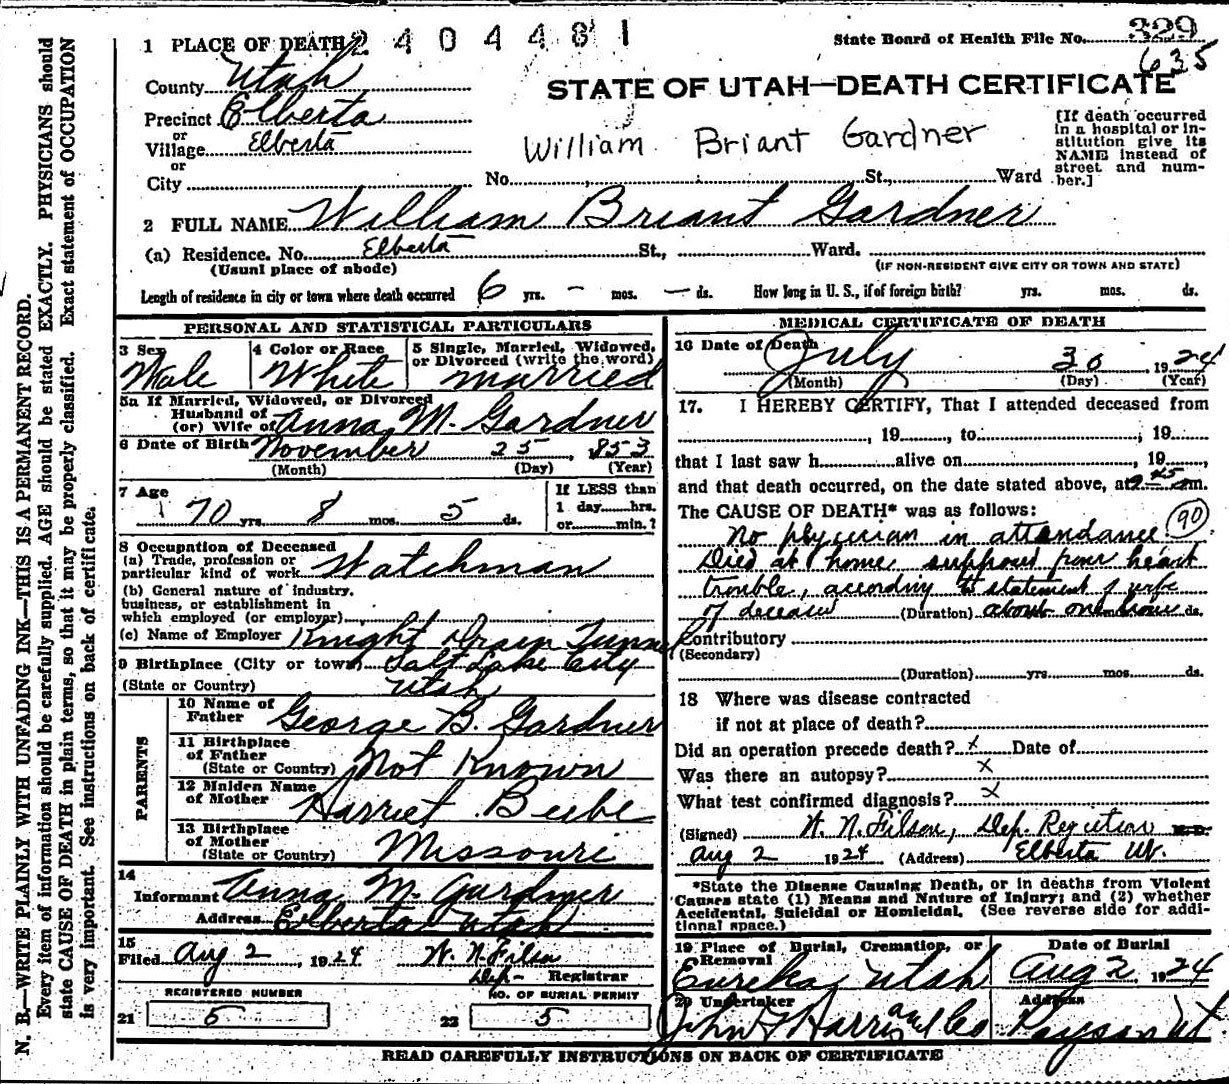 2404481
State Board of Health File No. 329
635
1 PLACE OF DEATH
County Utah
STATE OF UTAH—DEATH CERTIFICATE
Precinct Elberta
or
Village Elberta
or
City No. St., Ward
William Briant Gardner
[If death occurred
in a hospital or in-
stitution give its
NAME instead of
street and num-
ber.]
2 FULL NAME William Briant Gardner
(a) Residence. No. Elberta St., Ward.
(Usual place of abode) (IF NON-RESIDENT GIVE CITY OR TOWN AND STATE)
Length of residence in city or town where death occurred 6 yrs. - mos. - ds. How long in U. S., if of foreign birth? yrs. mos. ds.
PERSONAL AND STATISTICAL PARTICULARS
3 Sex Male
4 Color or Race White
5 Single, Married, Widowed,
or Divorced (write the word)
married
5a If Married, Widowed, or Divorced
Husband of
(or) Wife of Anna M. Gardner
6 Date of Birth November 25, 1853
(Month) (Day) (Year)
7 Age
70 yrs. 8 mos. 5 ds.
If LESS than
1 day hrs.
or min.?
8 Occupation of Deceased
(a) Trade, profession or
particular kind of work Watchman
(b) General nature of industry,
business, or establishment in
which employed (or employer)
(c) Name of Employer Knight Drain Tunnel
9 Birthplace (City or town) Salt Lake City
(State or Country) Utah
PARENTS
10 Name of
Father George B. Gardner
11 Birthplace
of Father
(State or Country) Not Known
12 Maiden Name
of Mother Harriet Beebe
13 Birthplace
of Mother
(State or Country) Missouri
14
Informant Anna M. Gardner
Address Elberta Utah
15
Filed Aug 2, 1924 W. N. Filson
Dep- Registrar
REGISTERED NUMBER
21 5
NO. OF BURIAL PERMIT
22 5
MEDICAL CERTIFICATE OF DEATH
16 Date of Death July 30, 1924
(Month) (Day) (Year)
17. I HEREBY CERTIFY, That I attended deceased from
, 19 , to , 19
that I last saw h alive on , 19 ,
and that death occurred, on the date stated above, at m.
The CAUSE OF DEATH* was as follows: 90
No physician in attendance.
Died at home suppose from heart
trouble, according to statement of wife
of deceased (Duration) about one hour ds.
Contributory
(Secondary)
(Duration) yrs. mos. ds.
18 Where was disease contracted
if not at place of death?
Did an operation precede death? x Date of
Was there an autopsy? x
What test confirmed diagnosis? x
(Signed) W. N. Filson, Dep. Registrar M.D.
Aug 2 1924 (Address) Elberta Ut.
*State the Disease Causing Death, or in deaths from Violent
Causes state (1) Means and Nature of Injury; and (2) whether
Accidental, Suicidal or Homicidal. (See reverse side for addi-
tional space.)
19 Place of Burial, Cremation, or
Removal
Eureka, Utah
Date of Burial
Aug 2 1924
20 Undertaker
John F Harris and Co
Address
Payson Ut
READ CAREFULLY INSTRUCTIONS ON BACK OF CERTIFICATE
N. B.—WRITE PLAINLY WITH UNFADING INK—THIS IS A PERMANENT RECORD.
Every item of information should be carefully supplied. AGE should be stated EXACTLY. PHYSICIANS should
state CAUSE OF DEATH in plain terms, so that it may be properly classified. Exact statement of OCCUPATION
is very important. See instructions on back of certificate.